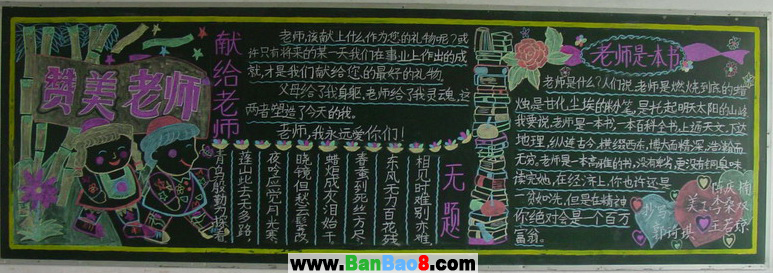 赞美老师
献给老师
老师,该献上什么作为您的礼物呢?或
许只有将来的某一天我们在事业上作出的成
就,才是我们献给您的最好的礼物。
父母给了我身躯,老师给了我灵魂,这
两者塑造了今天的我。
老师,我永远爱你们!
无题
相见时难别亦难
东风无力百花残
春蚕到死丝方尽
蜡炬成灰泪始干
晓镜但愁云鬓改
夜吟应觉月光寒
蓬山此去无多路
青鸟殷勤为探看
老师是一本书
老师是什么?人们说,老师是燃烧到底的蜡
烛,是甘化尘埃的粉笔,是托起明天太阳的山峰
我要说,老师是一本书,一本百科全书,上括天文,下达
地理,纵连古今,横缀西东,博大而精深,浩瀚而
无穷。老师是一本高雅的书,没有
读完她,在经济上,你也许还是
一贫如洗,但是在精神
你绝对会是一个百万
富翁。
美工
www.BanBao8.com